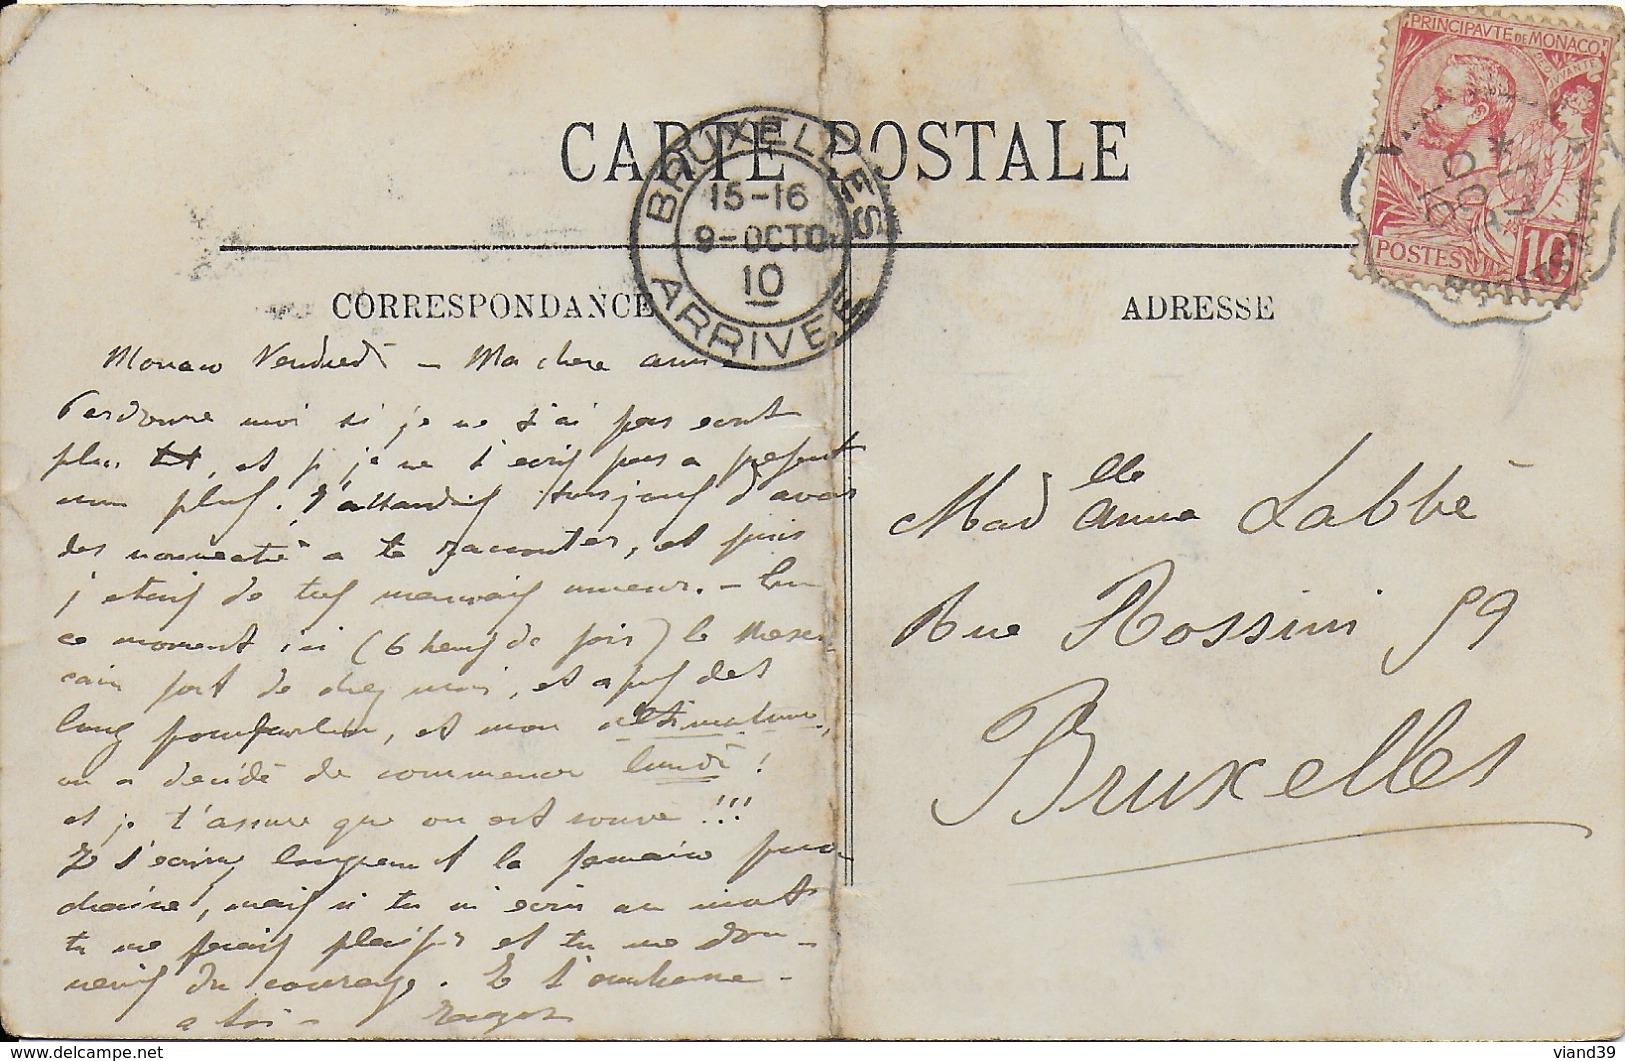 CARTE POSTALE
BRUXELLES
15-16
9-OCTO
10
ARRIVEE
PRINCIPAVTE DE MONACO
POSTES 10
CORRESPONDANCE
ADRESSE
Monaco Vendredi - Ma chere amie
Pardonne moi si je ne t'ai pas ecrit
plus tot, et si je ne t'ecris pas a present
non plus. J'attendais toujours d'avoir
des nouveautés a te raconter, et puis
j'etais de tres mauvais umeur. - En
ce moment ici (6 heures de soir) le
sort de chez moi, et apres des
long pourparlers, et mon ultimatum,
on a decidé de commencer lundi!
et je t'assure que on est sauvé !!!
Je t'ecrirai longuement la semaine pro-
chaine, mais si tu m'ecris un mot
tu me ferais plaisir et tu me don-
nerais du courage. Je t'embrasse -
a toi -
Madelle Anna Labbé
Rue Rossini 59
Bruxelles
delcampe.net
viand39